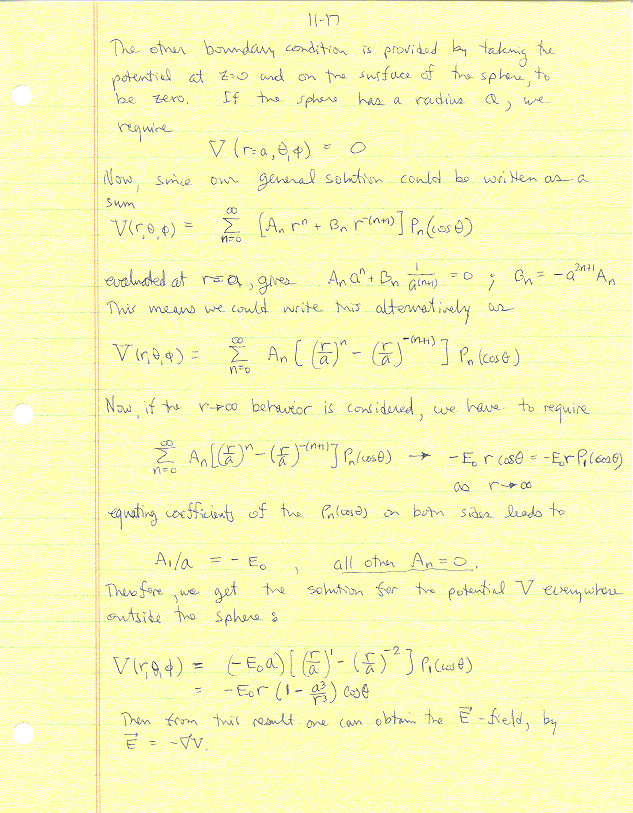 11-17
The other boundary condition is provided by taking the
potential at z=0 and on the surface of the sphere, to
be zero. If the sphere has a radius a, we
require
V (r=a, θ, φ) = 0
Now, since our general solution could be written as a
sum
V(r, θ, φ) = ∞ Σ n=0 [Aₙ rⁿ + Bₙ r⁻⁽ⁿ⁺¹⁾] Pₙ(cosθ)
evaluated at r=a, gives Aₙ aⁿ + Bₙ 1/a⁽ⁿ⁺¹⁾ = 0 ; Bₙ = -a²ⁿ⁺¹ Aₙ
This means we could write this alternatively as
V(r, θ, φ) = ∞ Σ n=0 Aₙ [ (r/a)ⁿ - (r/a)⁻⁽ⁿ⁺¹⁾ ] Pₙ (cosθ)
Now, if the r→∞ behavior is considered, we have to require
∞ Σ n=0 Aₙ [(r/a)ⁿ - (r/a)⁻⁽ⁿ⁺¹⁾] Pₙ(cosθ) → -E₀ r cosθ = -E₀r P₁(cosθ)
as r→∞
equating coefficients of the Pₙ(cosθ) on both sides leads to
A₁/a = - E₀ , all other Aₙ = 0.
Therefore, we get the solution for the potential V everywhere
outside the sphere :
V(r, θ, φ) = (-E₀a) [ (r/a)¹ - (r/a)⁻² ] P₁(cosθ)
= -E₀r (1 - a³/r³) cosθ
Then from this result one can obtain the E⃗ -field, by
E⃗ = -∇V.